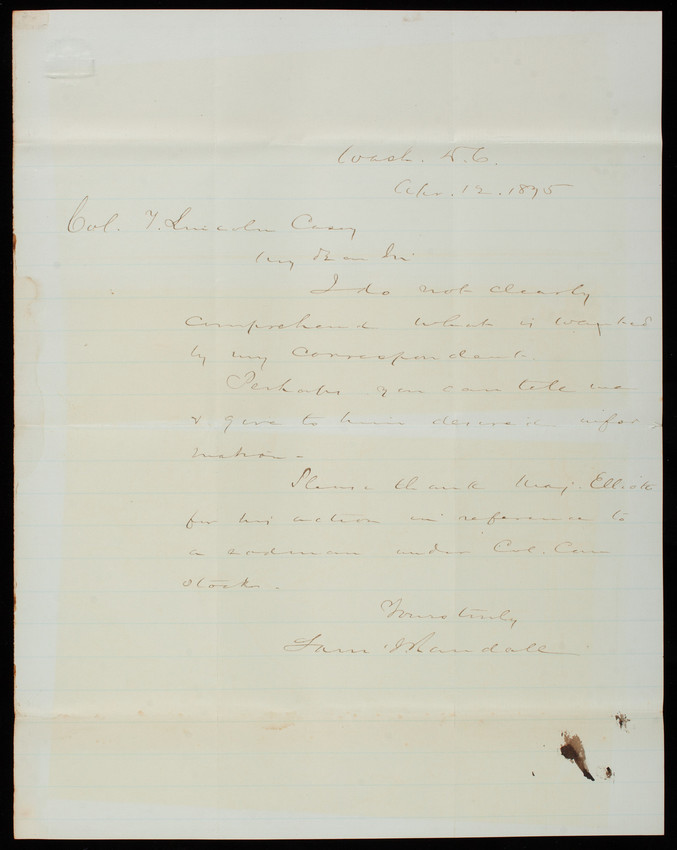 Wash. D.C.
Apr. 12. 1875
Col. T. Lincoln Casey
My Dear Sir
I do not clearly
comprehend what is wanted
by my correspondant.
Perhaps you can tell me
& give to him desired infor-
mation.
Please thank Maj. Elliott
for his action in reference to
a rodman under Col. Com
stock.
Yours truly
Sam J Randall